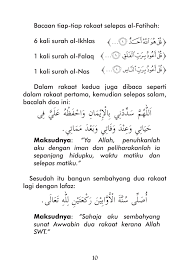 Bacaan tiap-tiap rakaat selepas al-Fatihah:
6 kali surah al-Ikhlas ﴿قُلْ هُوَ اللَّهُ أَحَدٌ﴾
1 kali surah al-Falaq ﴿قُلْ أَعُوذُ بِرَبِّ الْفَلَقِ﴾
1 kali surah al-Nas ﴿قُلْ أَعُوذُ بِرَبِّ النَّاسِ﴾
Dalam rakaat kedua juga dibaca seperti
dalam rakaat pertama, kemudian selepas salam,
bacalah doa ini:
اَللّٰهُمَّ سَدِّدْنِي بِالْإِيْمَانِ وَاحْفَظْهُ عَلَيَّ فِي
حَيَاتِي وَعِنْدَ وَفَاتِي وَبَعْدَ مَمَاتِي.
Maksudnya: "Ya Allah, penuhkanlah
aku dengan iman dan peliharakanlah ia
sepanjang hidupku, waktu matiku dan
selepas matiku."
Sesudah itu bangun sembahyang dua rakaat
lagi dengan lafaz:
أُصَلِّي سُنَّةَ الْأَوَّابِيْنَ رَكْعَتَيْنِ لِلّٰهِ تَعَالَى.
Maksudnya: "Sahaja aku sembahyang
sunat Awwabin dua rakaat kerana Allah
SWT."
10